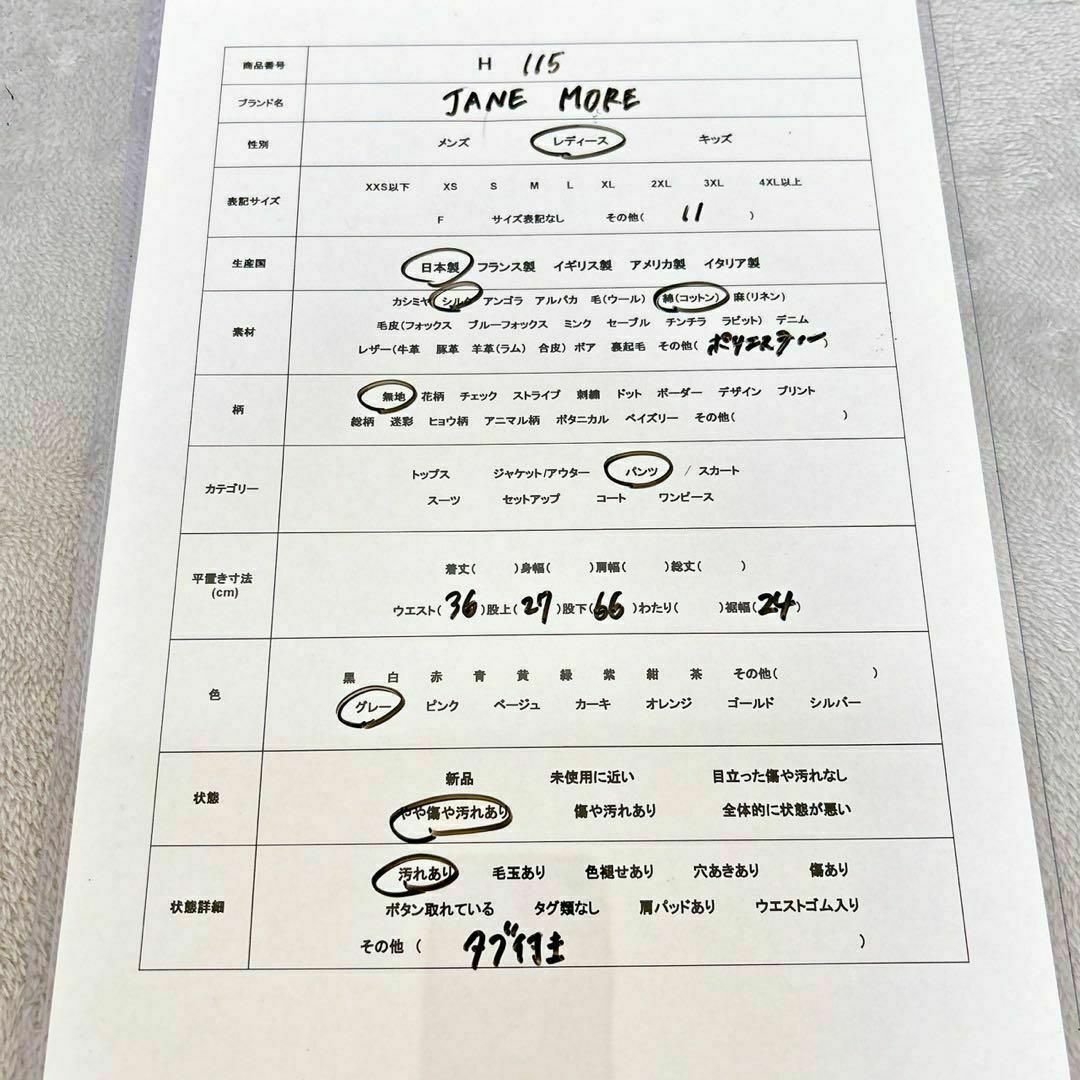 商品番号 H 115
ブランド名 JANE MORE
性別 メンズ レディース キッズ
表記サイズ XXS以下 XS S M L XL 2XL 3XL 4XL以上
F サイズ表記なし その他( 11 )
生産国 日本製 フランス製 イギリス製 アメリカ製 イタリア製
素材 カシミヤ シルク アンゴラ アルパカ 毛(ウール) 綿(コットン) 麻(リネン)
毛皮(フォックス ブルーフォックス ミンク セーブル チンチラ ラビット) デニム
レザー(牛革 豚革 羊革(ラム) 合皮) ボア 裏起毛 その他( ポリエステー)
柄 無地 花柄 チェック ストライプ 刺繍 ドット ボーダー デザイン プリント
総柄 迷彩 ヒョウ柄 アニマル柄 ボタニカル ペイズリー その他( )
カテゴリー トップス ジャケット/アウター パンツ / スカート
スーツ セットアップ コート ワンピース
平置き寸法 (cm) 着丈( )身幅( )肩幅( )総丈( )
ウエスト( 36 )股上( 27 )股下( 66 )わたり( )裾幅( 24 )
色 黒 白 赤 青 黄 緑 紫 紺 茶 その他( )
グレー ピンク ベージュ カーキ オレンジ ゴールド シルバー
状態 新品 未使用に近い 目立った傷や汚れなし
やや傷や汚れあり 傷や汚れあり 全体的に状態が悪い
状態詳細 汚れあり 毛玉あり 色褪せあり 穴あきあり 傷あり
ボタン取れている タグ類なし 肩パッドあり ウエストゴム入り
その他 ( タグ付き )